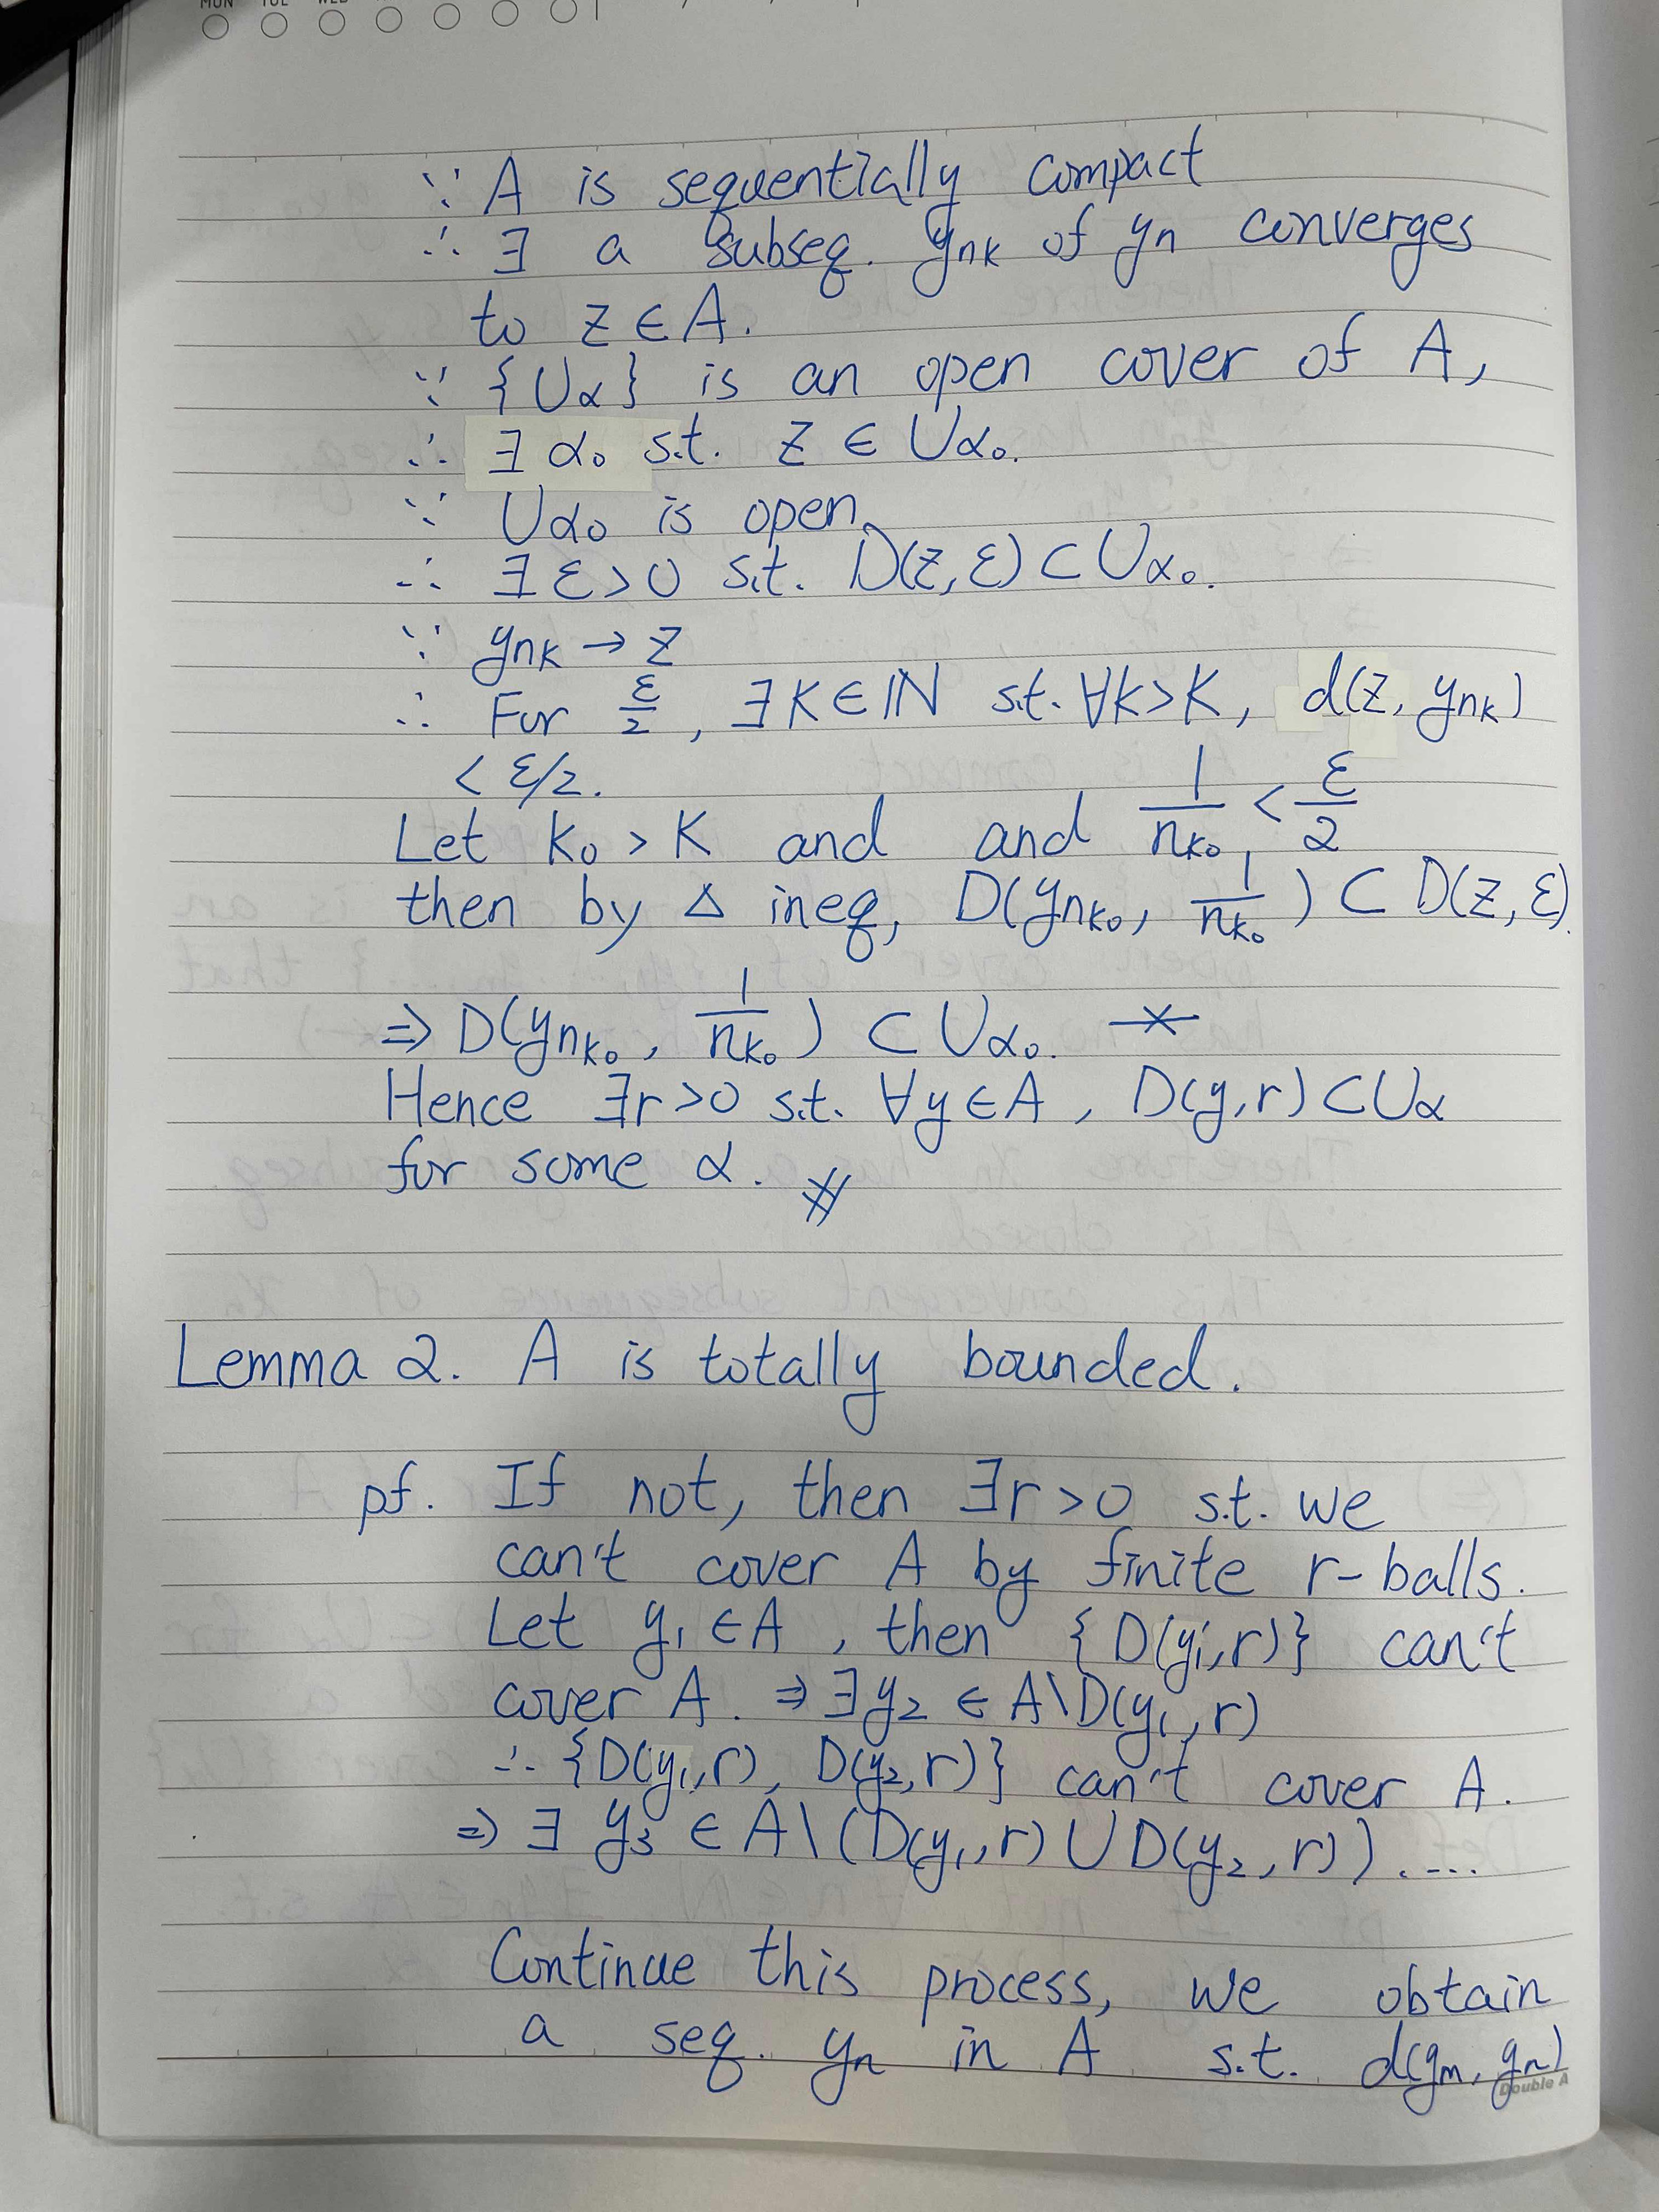 MON TUE WED
∵ A is sequentially compact
∴ ∃ a subseq. yₙₖ of yₙ converges
to z ∈ A.
∵ {Uα} is an open cover of A,
∴ ∃ α₀ s.t. z ∈ Uα₀.
∵ Uα₀ is open,
∴ ∃ ε > 0 s.t. D(z, ε) ⊂ Uα₀.
∵ yₙₖ → z
∴ For ε/2, ∃ K ∈ ℕ s.t. ∀k > K, d(z, yₙₖ)
< ε/2.
Let k₀ > K and and 1/nₖ₀ < ε/2
then by △ ineq, D(yₙₖ₀, 1/nₖ₀) ⊂ D(z, ε).
⇒ D(yₙₖ₀, 1/nₖ₀) ⊂ Uα₀. ※
Hence ∃r > 0 s.t. ∀y ∈ A, D(y, r) ⊂ Uα
for some α. #
Lemma 2. A is totally bounded.
pf. If not, then ∃r > 0 s.t. we
can't cover A by finite r-balls.
Let y₁ ∈ A, then {D(y₁, r)} can't
cover A. ⇒ ∃ y₂ ∈ A\D(y₁, r)
∴ {D(y₁, r), D(y₂, r)} can't cover A.
⇒ ∃ y₃ ∈ A\(D(y₁, r) ∪ D(y₂, r)). ....
Continue this process, we obtain
a seq. yₙ in A s.t. d(yₘ, yₙ)
Double A